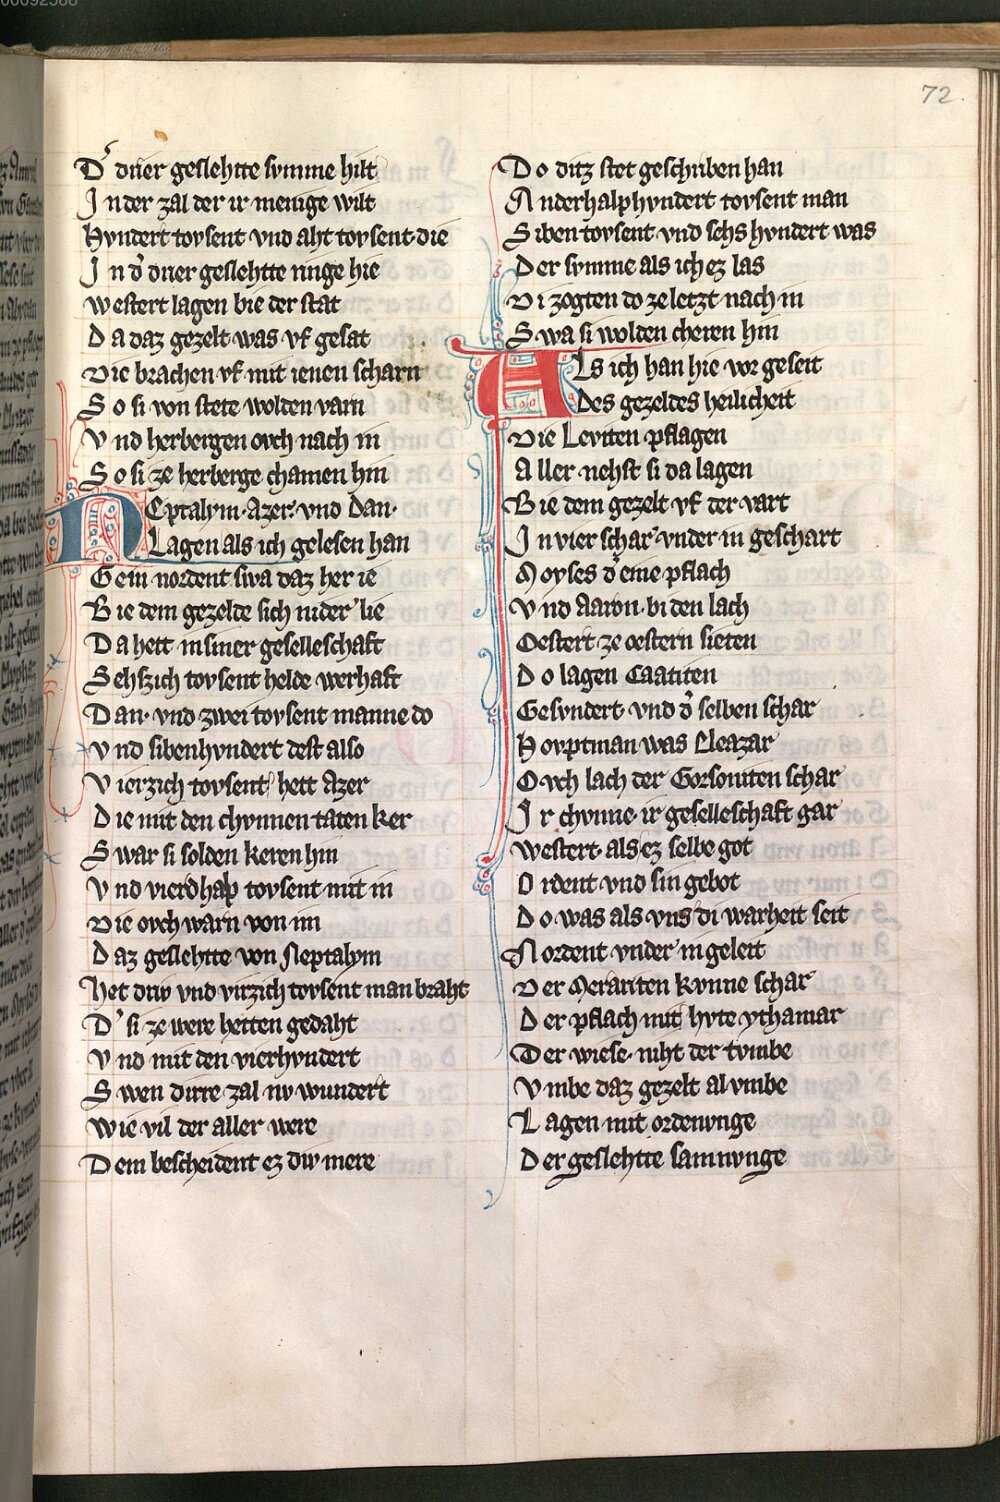 72.
D' drier geslehtte svmme hilt
In der zal der ir menige wilt
Hvndert tovsent vnd aht tovsent·die
In d' drier geslehtte ringe hie
westert lagen bie der stat
Da daz gezelt was vf gesat
Die brachen vf mit ienen scharn
So si von stete wolden varn
Vnd herbergen ovch nach in
So si ze herberge chamen hin
NEptalym·Azer·vnd Dan·
Lagen als ich gelesen han
Gein nordent swa daz her ie
Bie dem gezelde sich nider lie
Da hett in siner geselleschaft
Sehszich tovsent helde werhaft
Dan· vnd zwei tovsent manne do
Vnd sibenhvndert dest also
Vierzich tovsent hett Azer
Die mit den chvnnen taten ker
Swar si solden keren hin
Vnd vierdhalp tovsent mit in
Die ovch warn von im
Daz geslehtte von Neptalym
Het driv vnd virzich tovsent man braht
D' si ze were hetten gedaht
Vnd mit den vierhvndert
Swen dirre zal nv wundert
wie vil der aller were
Dem bescheident ez div mere
Do ditz stet geschriben han
Anderhalphvndert tovsent man
Siben tovsent vnd sehs hvndert was
Der svmme als ich ez las
Di zogten do ze letzt nach in
Swa si wolden cheren hin
Als ich han hie vor geseit
Des gezeldes heilicheit
Die Leviten pflagen
Aller nehst si da lagen
Bie dem gezelt vf der vart
In vier schar vnder in geschart
Moyses d' eine pflach
Vnd Aaron·bi den lach
Oestert ze oestern sieten
Do lagen Caatiten
Gesvndert·vnd d' selben schar
Hovptman was Eleazar
Ovch lach der Gorsoniten schar
Ir chvnne·ir geselleschaft gar
westert·als ez selbe got
Ordent·vnd sin gebot
Do was als vns di warheit seit
Nordent vnder in geleit
Der Merariten kvnne schar
Der pflach mit hvte ythamar
Der wiese·niht der tvmbe
Vmbe daz gezelt al vmbe
Lagen mit ordenvnge
Der geslehtte samnvnge